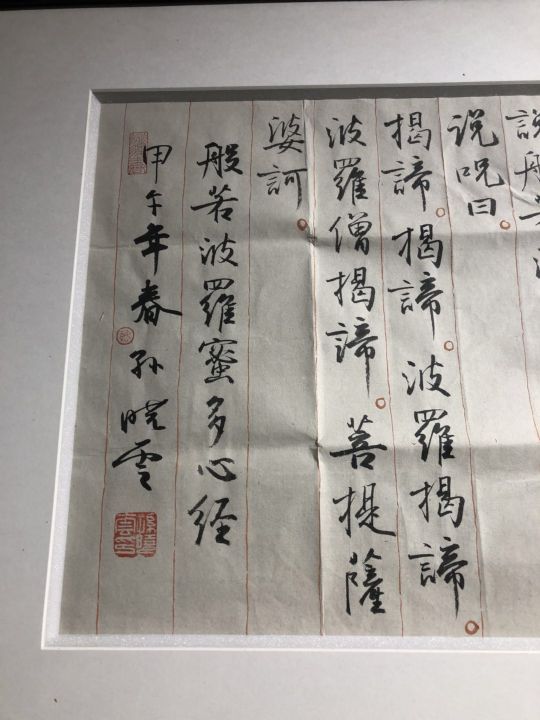 說般若波
说呪曰
揭諦揭諦波羅揭諦
波羅僧揭諦菩提薩
婆訶
般若波羅蜜多心经
甲午年春孙晓云